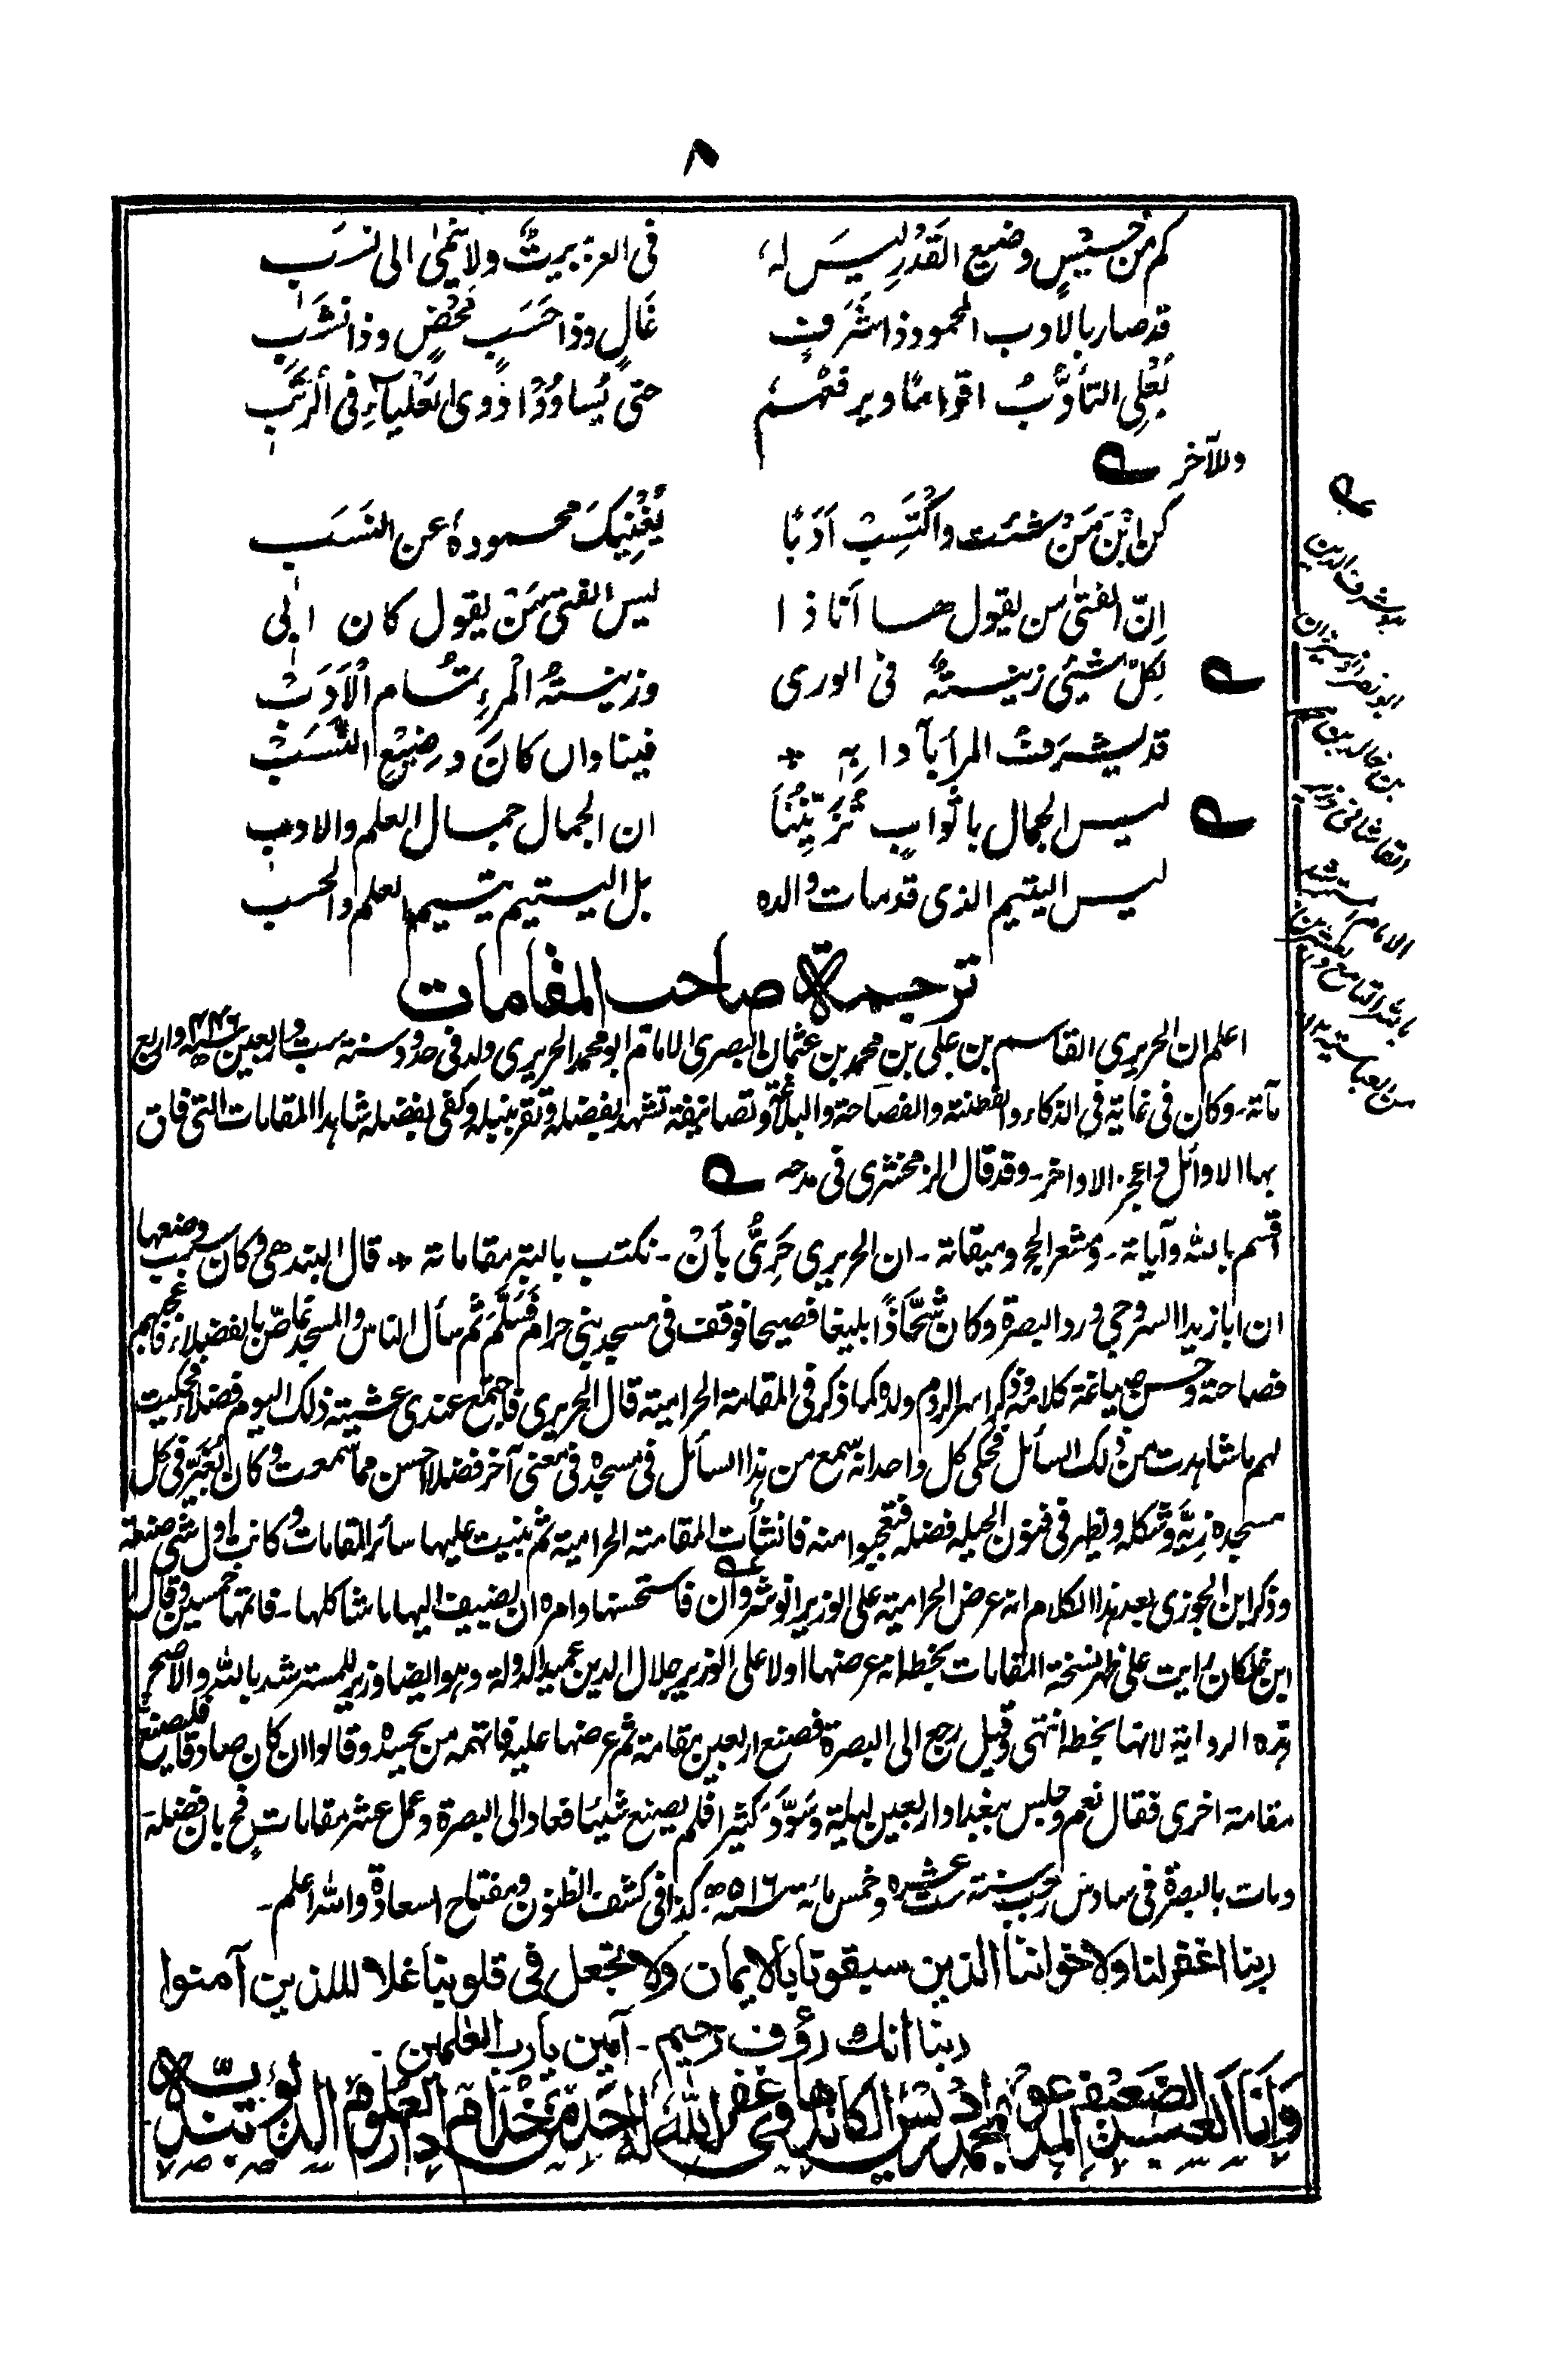 ٨
كم من خسيسٍ وضيع القدر ليسَ له في العز بيت ولا ينمى الى نسَب
قد صار بالادب المحمود ذا شرف عَالٍ وذا حَسَبٍ محضٍ وذا نشب
يُعلى التأدُّبُ اقوامًا ويرفعهم حتى يُساوُوْا ذوى العَلياءِ فى الرتَب
وللآخر
كن ابْنَ مَنْ شئت واكتَسِبْ اَدَبًا يُغْنِيكَ محموده عن النَسَب
اِنّ الفتىٰ من يقول ها انا ذا ليس الفتى مَنْ يقول كان ابى
لِكلّ شيئى زينة فى الورى وزينة المرءِ تمام الاَدَبْ
قد يشرف المرأ بآدابه فينا وان كان وضيع النسَبْ
ليس الجمال باثوابٍ تُزَيِّنُنَا ان الجمال جمال العلم والادب
ليس اليتيم الذى قد مات والده بل اليتيم يتيم العلم والحسب
ترجمة صاحب المقامات
اعلم ان الحريرى القاسم بن على بن محمد بن عثمان البصرى الامام ابو محمد الحريرى ولد فى حدود سنة ست واربعين ٤٤٦ واربع
مأته - وكان فى غاية فى الذكاء والفطنة والفصاحة والبلاغة وتصانيفه تشهد بفضله وتقر بنبله وكفى بفضله شاهدا المقامات التى فاق
بها الاوائل واعجز الاواخر - وقد قال الزمخشرى فى مدحه
اقسم بالله وآياته - ومشعر الحج وميقاته - ان الحريرى حَرِىٌّ بأنْ - نكتب بالتبر مقاماته قال البندهى وكان سبب وضعها
ان ابا زيد السروجى ورد البصرة وكان شحّاذًا بليغا فصيحا فوقف فى مسجد بنى حرام فَسَلَّمَ ثم سأل الناس والمسجد غاصّ بالفضلاء فاعجبهم
فصاحته وحسن صياغة كلامه وذكر اسر الروم ولده كما ذكر فى المقامة الحرامية قال الحريرى فاجتمع عندى عشية ذلك اليوم فضلاء فحكيت
لهم ما شاهدت من ذلك السائل فحكى كل واحد انه سمع من هذا السائل فى مسجده فى معنى آخر فضلا احسن مما سمعت وكان يُغَيِّر فى كل
مسجد زِيَّه وشكله ويظهر فى فنون الحيلة فضله فتعجبوا منه فانشأت المقامة الحرامية ثم بنيت عليها سائر المقامات وكانت اول شئ صنعته
وذكر ابن الجوزى بعد هذا الكلام انه عرض الحرامية على الوزير انوشروان فاستحسنها وامره ان يضيف اليها ما شاكلها - فاتمها خمسين وقال
ابن خلكان رايت على ظهر نسخة المقامات بخطه انه عرضها اولا على الوزير جلال الدين عميد الدولة وهو ايضا وزير للمسترشد بالله والاصح
هذه الرواية لانها بخطه انتهى وقيل رجع الى البصرة فصنع اربعين مقامة ثم عرضها عليه فاتهمه من يحسده وقالوا ان كان صادقا فليصنع
مقامة اخرى فقال نعم وجلس ببغداد اربعين ليلة وسَوَّدَ كثيرا فلم يصنع شيئا فعاد الى البصرة وعمل عشر مقامات فح بان فضله
ومات بالبصرة فى سادس رجب سنة ست عشره وخمس مائة ٥١٦ كذا فى كشف الظنون ومفتاح السعادة والله اعلم -
ربنا اغفر لنا ولاخواننا الذين سبقونا بالايمان ولا تجعل فى قلوبنا غلا للذين آمنوا
ربنا انك رؤف رحيم - آمين يا رب العٰلمين
وَاَنَا العبد الضعيف المدعو بمحمد ادريس الكاندهلوى غفر الله له احد من خدام دار العلوم الديوبندية
هو شرف الدين
ابو نصر انوشروان
بن خالد بن محمد
القاشانى وزير
الامام المسترشد
بالله